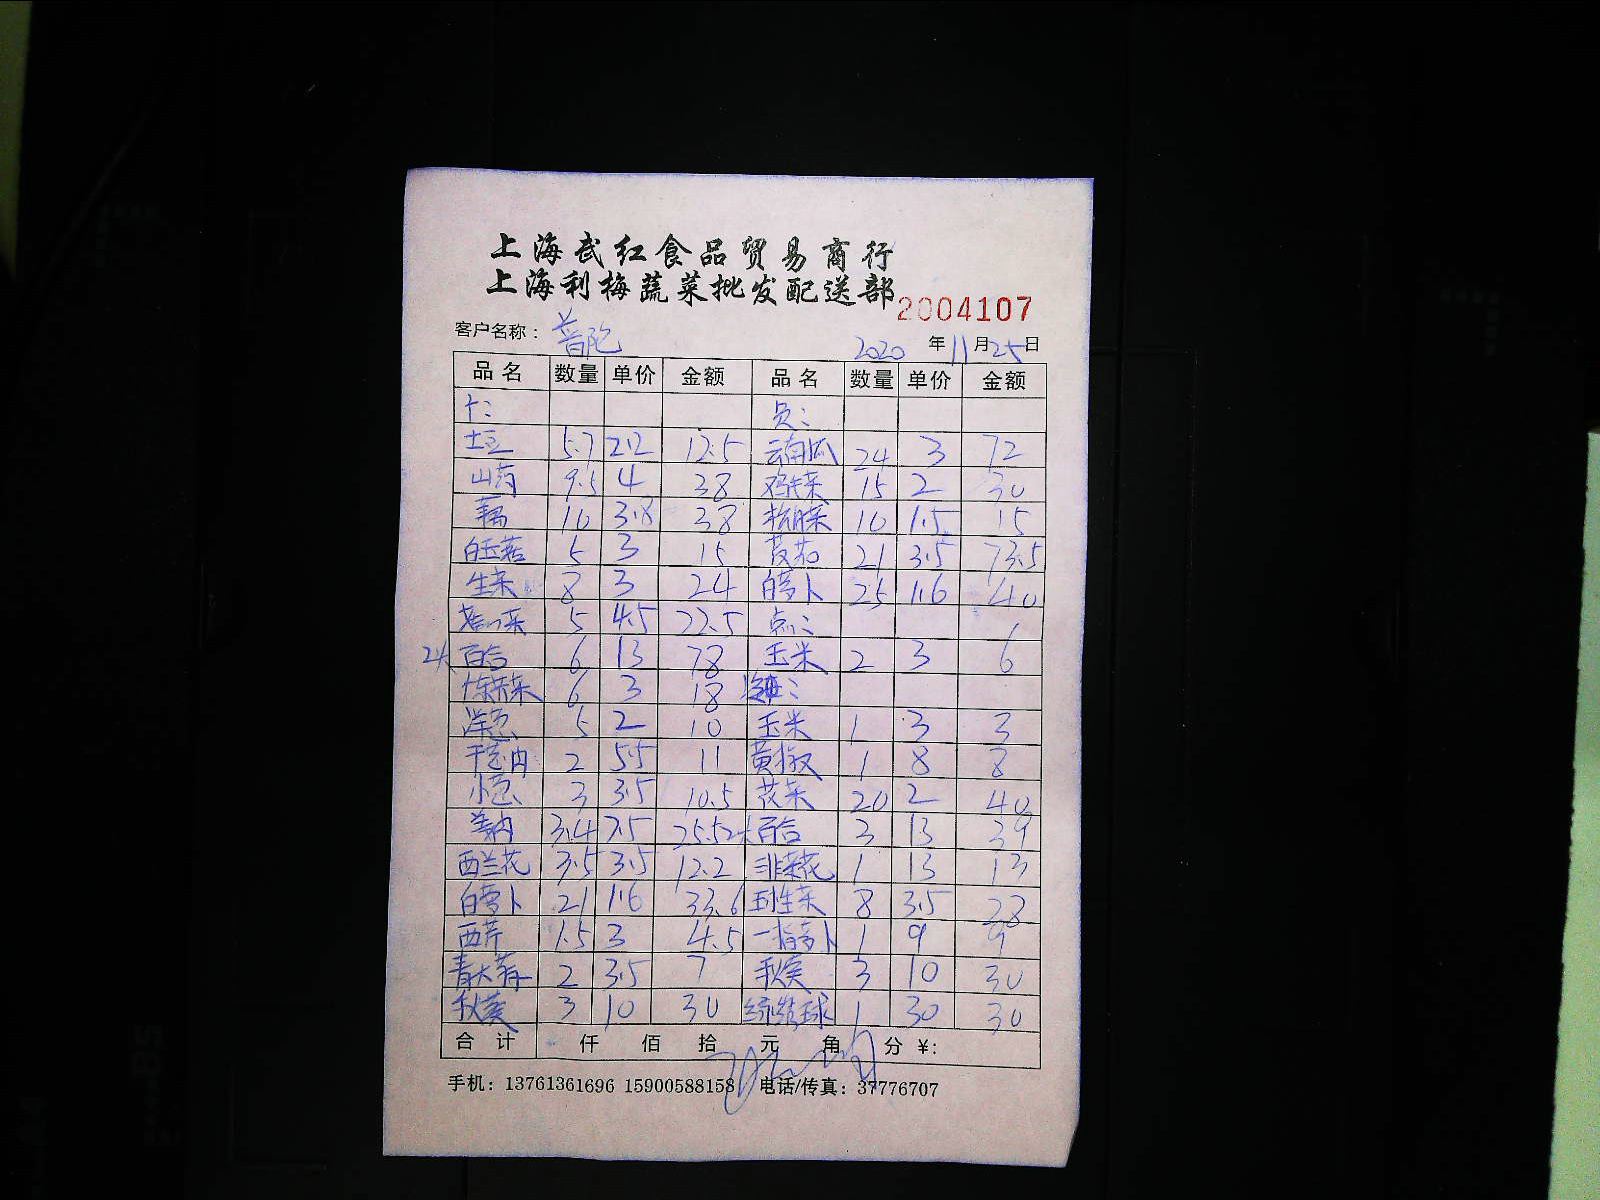 上海武红食品贸易商行
上海利梅蔬菜批发配送部
2004107
客户名称： 普陀 2020 年 11 月 25 日
品名 数量 单价 金额 品名 数量 单价 金额
土豆 5.7 2.2 12.5 云南瓜 24 3 72
山药 9.5 4 38 鸡毛菜 15 2 30
藕 10 3.8 38 10 1.5 15
白玉菇 5 3 15 茭茄 21 3.5 73.5
生菜 8 3 24 白萝卜 25 1.6 40
5 4.5 22.5 点：
2大 百合 6 13 78 玉米 2 3 6
6 3 18
洋葱 5 2 10 玉米 1 3 3
2 5.5 11 黄椒 1 8 8
小葱 3 3.5 10.5 花菜 20 2 40
3.4 7.5 25.5 2大 百合 3 13 39
西兰花 3.5 3.5 12.2 韭菜花 1 13 13
白萝卜 21 1.6 33.6 生菜 8 3.5 28
西芹 1.5 3 4.5 一指萝卜 1 9 9
青大 2 3.5 7 秋葵 3 10 30
秋葵 3 10 30 球 1 30 30
合计 仟 佰 拾 元 角 分 ¥:
手机：13761361696 15900588158 电话/传真：37776707